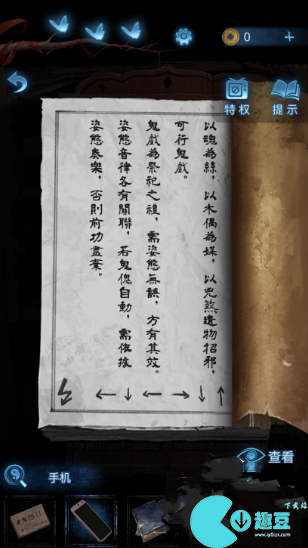 0
特权
提示
以魂為絲，以木偶為媒，以兇煞遺物招邪，
可行鬼戲。
鬼戲為祭祀之禮，需姿態無誤，方有其效。
姿態音律各有關聯，若鬼傀自動，需依據
姿態奏樂，否則前功盡棄。
← ↓ ← → ↓ ↑
查看
手机
下载站
趣豆